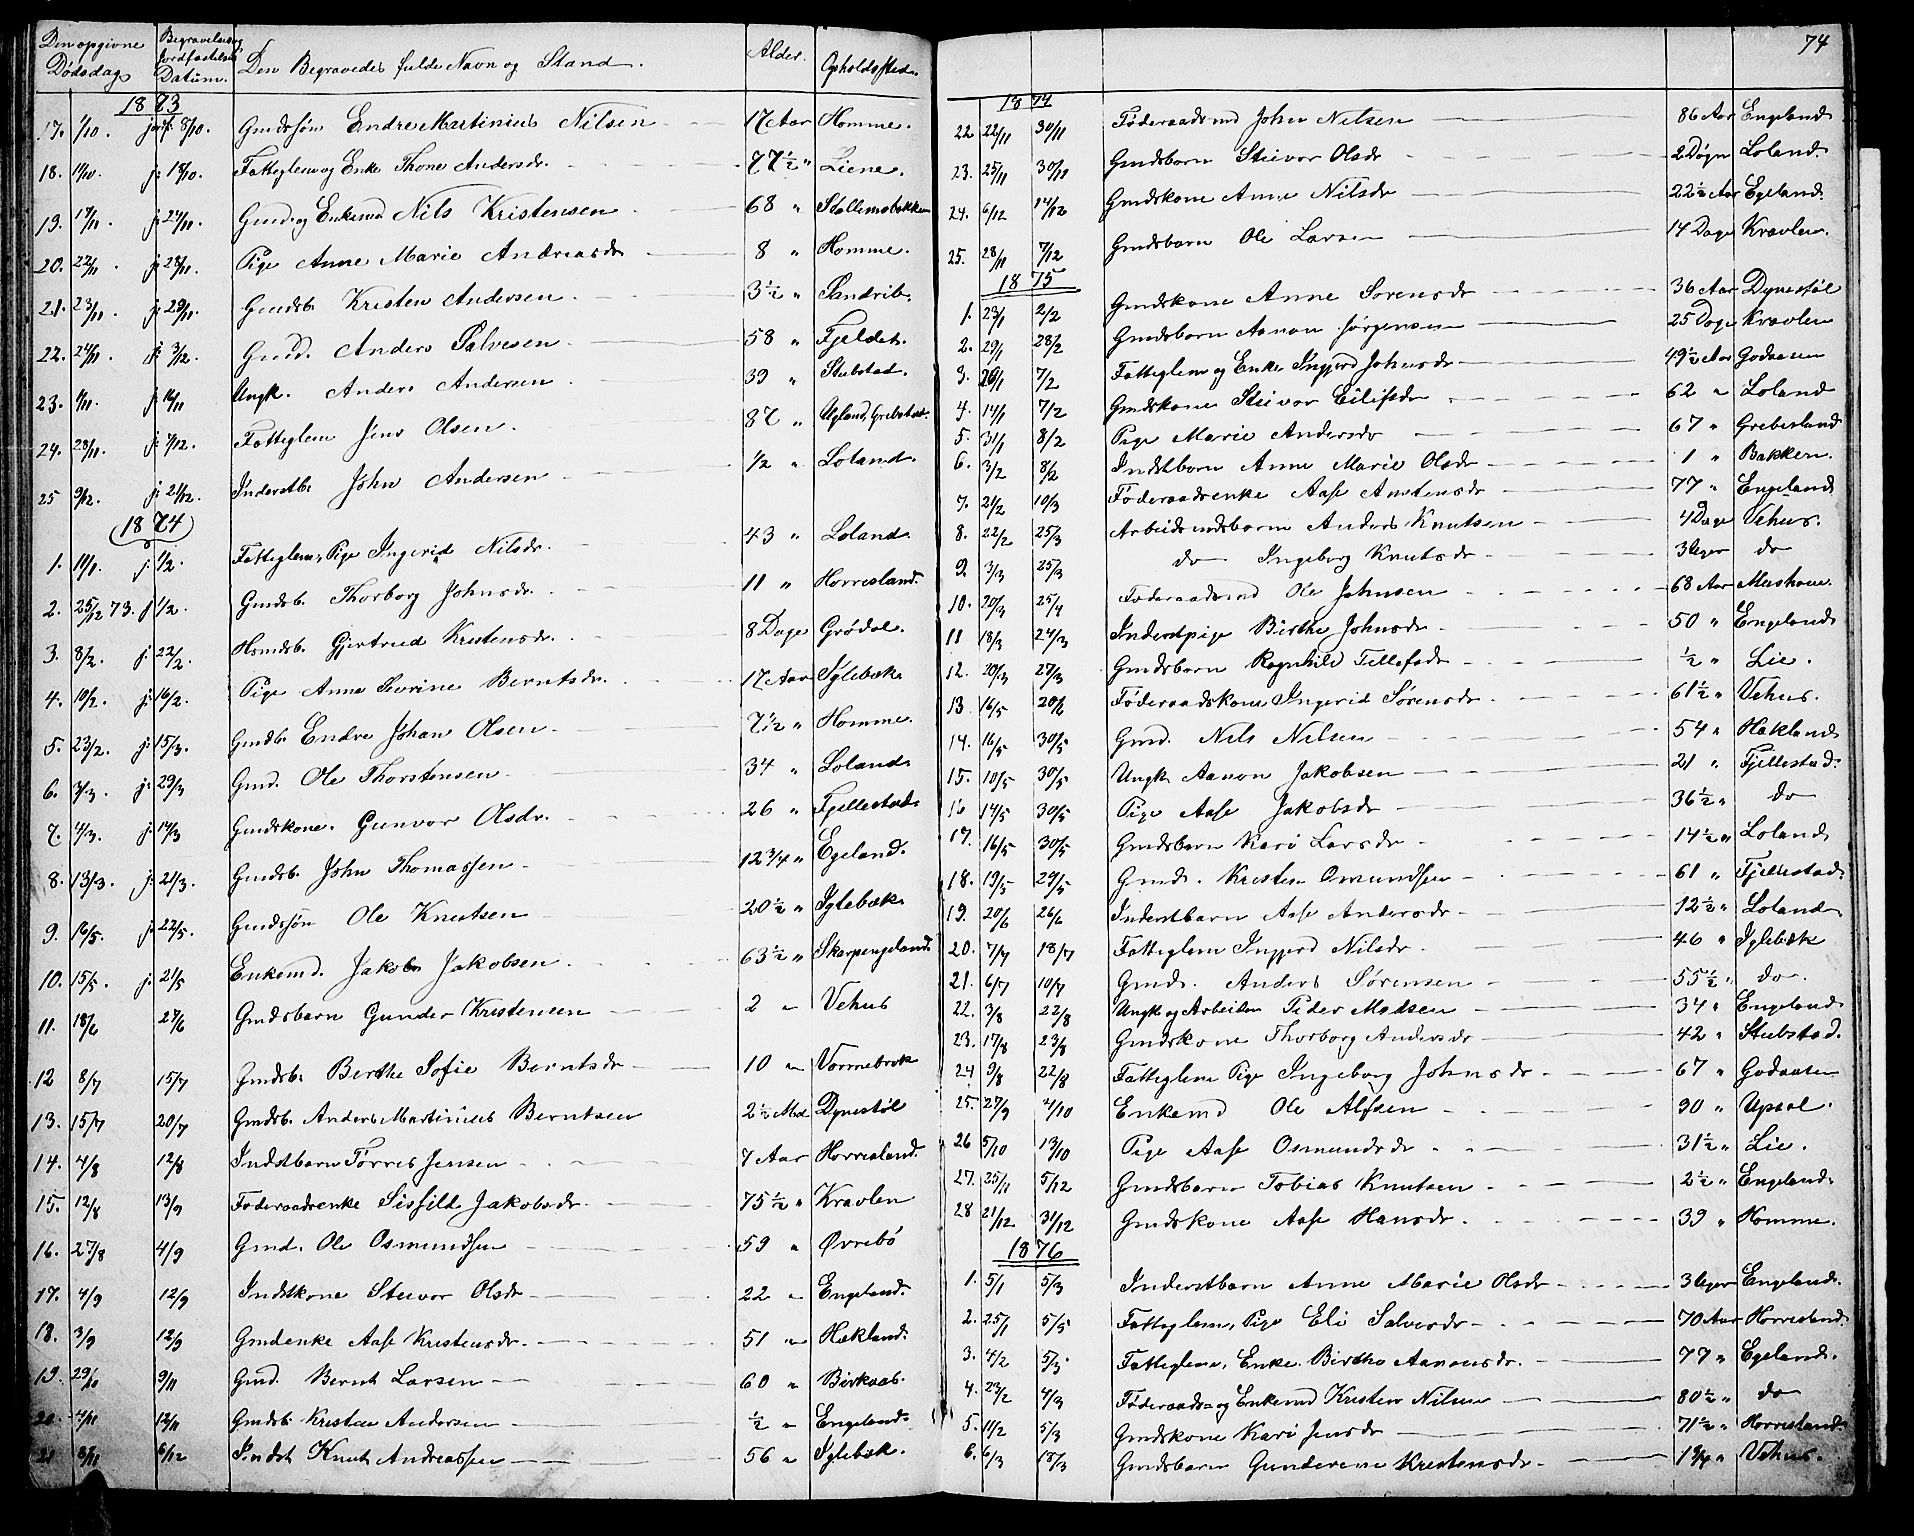 Den opgivne Dødsdag Begravelses og Jordfæstelses Datum. Den Begravedes fulde Navn og Stand. Alder. Opholdssted.
1873
17. 1/10. 8/10. Gmdssøn Endre Martinius Nilsen 17 Aar Homme.
18. 11/10. j: 18/10. Fatteglem og Enke Thone Andersdr. 77½ " Liene.
19. 17/11. j: 24/11. Gmd. og Enkemd Nils Kristensen 68 " Stallemsbakken
20. 22/11. j: 28/11. Pige Anne Marie Andreasdr 8 " Homme.
21. 23/11. j: 29/11. Gmdsb. Kristen Andersen 3½ " Sandrib.
22. 24/11. j: 3/12. Gmd. Anders Salvesen 58 " Fjeldet.
23. j Ungk. Anders Andersen 39 " Stubstad.
24. 28/11. j: 7/12. Fatteglem Jens Olsen. 87 " Ugland, Grebstad.
25 9/12. j: 21/12. Inderstb. John Andersen 1/2 " Loland.
1874
1. 11/1. j: 1/2. Fatteglem, Pige Ingerid Nilsdr. 43 " Loland
2. 25/12 73. j 1/2. Gmdsb. Thorborg Johnsdr. 11 " Horresland.
3. 8/2. j: 22/2. Hsmdsb. Gjertrud Kristensdr. 8 Dage Grødal.
4. 10/2. j: 16/2. Pige Anna Severine Berntsdr. 17 Aar Iglebæk
5. 23/2. j: 15/3. Gmdsb. Endre Johan Olsen 7½ " Homme.
6. 3/3. j: 29/3 Gmd. Ole Thorstensen 34 " Loland
7. 4/3. j. 14/3 Gmdskone. Gunvor Olsdr. 26 " Fjellestad
8. 13/3. j: 21/3. Gmdsb. John Thomassen 12 3/4 " Egeland.
9. 16/5. j: 22/5. Gmdssøn Ole Knutsen 20½ " Iglebæk.
10. 15/5. j: 21/5 Enkemd. Jakob Jakobsen 63½ " Skarpengeland.
11. 18/6 27/6 Gmdsbarn Gunder Kristensen 2 " Vehus
12 8/7 15/7 Gmdsb. Berthe Sofie Berntsdr 10 " Vormebrok
13. 15/7 20/7 Gmdsb. Anders Martinius Berntsen 2½ Md Dynestøl
14. 4/8 12/8 Indstbarn Tørres Jensen 7 Aar Horresland.
15. 12/8 13/9 Føderaadsenke Sisfild Jakobsdr. 75½ " Kravlen
16. 27/8 4/9 Gmd. Ole Osmundsen 59 " Øvrebø
17. 4/9 12/9 Indstkone Steivor Olsdr 22 " Engeland.
18. 3/9 12/9 Gmdenke Aase Kristensdr. 51 " Hækland.
19. 29/10 9/11 Gmd. Bernt Larsen 60 " Birkaas.
20. 4/11 12/11 Gmdsb. Kristen Andersen ½ " Engeland
21 8/11 6/12 Indst Knut Andreassen 56 " Iglebæk.
74
1874
22 22/11 30/11 Føderaadsmd John Nilsen 86 Aar Engeland
23. 25/11 30/11 Gmdsbarn Steivor Olsdr 2 Døgn Loland.
24. 6/12 14/12 Gmdskone Anne Nilsdr 22½ Aar Egeland.
25. 28/11 7/12 Gmdsbarn Ole Larsen 14 Dage Kravlen.
1875
1. 23/1 2/2 Gmdskone Anne Sørensdr 36 Aar Dynestøl
2. 29/1 28/2 Gmdsbarn Aanon Jørgensen 25 Dage Kravlen
3. 26/1 7/2 Fatteglem og Enke Ingjerd Johnsdr 49½ Aar Godaasen
4. 14/1 7/2 Gmdskone Steivor Eilifsdr 62 " Loland
5. 31/1 8/2 Pige Marie Andersdr 67 " Grebesland
6. 3/2 8/2 Indstbarn Anne Marie Olsdr 1 " Bakken.
7. 21/2 10/3 Føderaadsenke Aase Anstensdr 77 " Engeland
8. 22/2 25/3 Arbeidsmdsbarn Anders Knutsen 4 Dage Vehus.
9. 3/3 25/3 do Ingeborg Knutsdr 3 Uger do
10. 20/3 25/4 Føderaadsmd Ole Johnsen 68 Aar
11 18/3 24/3 Inderstpige Birthe Johnsdr 50 " Engeland
12. 20/3 27/3 Gmdsbarn Ragnhild Tellefsdr ½ " Lie.
13. 16/5 20/6 Føderaadskone Ingerid Sørensdr 61½ " Vehus.
14. 16/5 30/5 Gmd. Nils Nilsen 54 " Hækland
15. 10/5 30/5 Ungk. Aanon Jakobsen 21 " Fjellestad.
16 14/5 30/5 Pige Aase Jakobsdr 36½ " do
17. 16/5 30/5 Gmdsbarn Kari Larsdr 14½ " Loland
18. 19/5 29/5 Gmd. Kristen Osmundsen 61 " Fjellestad.
19. 20/6 26/6 Inderstbarn Aase Andersdr 12½ " Loland
20. 7/7 18/7 Fatteglem Ingjerd Nilsdr. 46 " Iglebæk
21. 6/7 10/7 Gmd. Anders Sørensen 55½ " do.
22. 3/8 22/8 Ungk og Arbeider Peder Madsen 34 " Engeland
23. 17/8 23/8 Gmdskone Thorborg Andersdr 42 " Stubstad.
24 9/8 22/8 Fatteglem Pige Ingeborg Johnsdr 67 " Godaasen
25. 27/9 4/10 Enkemd Ole Alfsen 90 " Upsal.
26 5/10 13/10 Pige Aase Osmundsdr 31½ " Lie.
27. 25/11 5/12 Gmdsbarn Tobias Knutsen 2½ " Engeland.
28 21/12 31/12 Gmdskone Aase Hansdr. 39 " Homme.
1876
1. 5/1 5/3 Inderstbarn Anne Marie Olsdr 3 Uger Engeland.
2. 25/1 5/5 Fatteglem, Pige Eli Salvesdr 70 Aar Horresland.
3. 4/2 5/3 Fatteglem, Enke. Birthe Aanonsdr. 77 " Egeland.
4. 23/2 4/3 Føderaads- og Enkemd Kristen Nilsen 80½ " do
5. 11/2 5/3 Gmdskone Kari Jensdr 71½ " Horresland
6. 6/3 18/3 Gmdsbarn Gunderine Kristensdr. 1 3/4 " Vehus.